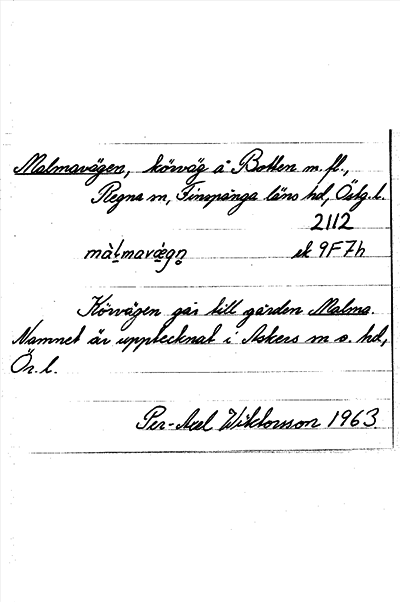 Malmavägen, körväg å Botten m. fl.,
Regna sn, Finspånga läns hd, Östg. l.
2112
màl̠mavæ̀gn̥ ek 9F7h
Körvägen går till gården Malma.
Namnet är upptecknat i Askers sn o. hd,
Ör. l.
Per-Axel Wiktorsson 1963.